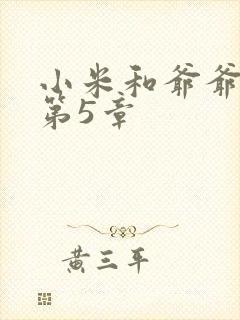 小米和爷爷
第5章
黄三平